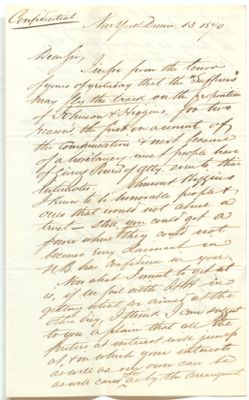 Confidential
New York Decem. 13 1870
Dear Sir,
I infer from the tenor
of yours of yesterday that the
may fly the track on the proposition
of Johnson & Higgins, for two
reasons the first on account of
the compensation & next because
of a hesitancy most people have
of giving Powers of Atty. even to their
Johnson & Higgins
I know to be honorable people &
ones that would not abuse a
trust
from where they could not
because
confidence in you
Now what I want to get at
is, if we fail with J & H in
getting what we aimed at the
other day, I think I can suggest
to you a plan that all the
parties at interest will jump
at & in which your interests
as well as our own can be
as well by the arrangement